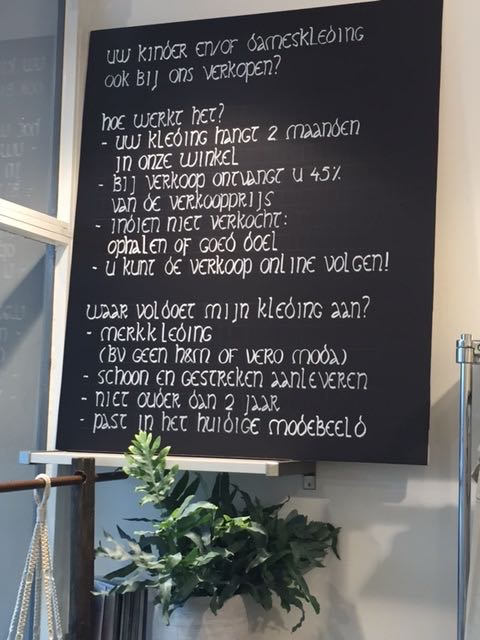 UW KINDER EN/OF DAMESKLEDING
OOK BIJ ONS VERKOPEN?
HOE WERKT HET?
- UW KLEDING HANGT 2 MAANDEN
IN ONZE WINKEL
- BIJ VERKOOP ONTVANGT U 45%
VAN DE VERKOOPPRIJS
- INDIEN NIET VERKOCHT:
OPHALEN OF GOED DOEL
- U KUNT DE VERKOOP ONLINE VOLGEN!
WAAR VOLDOET MIJN KLEDING AAN?
- MERKKLEDING
(BV GEEN H&M OF VERO MODA)
- SCHOON EN GESTREKEN AANLEVEREN
- NIET OUDER DAN 2 JAAR
- PAST IN HET HUIDIGE MODEBEELD